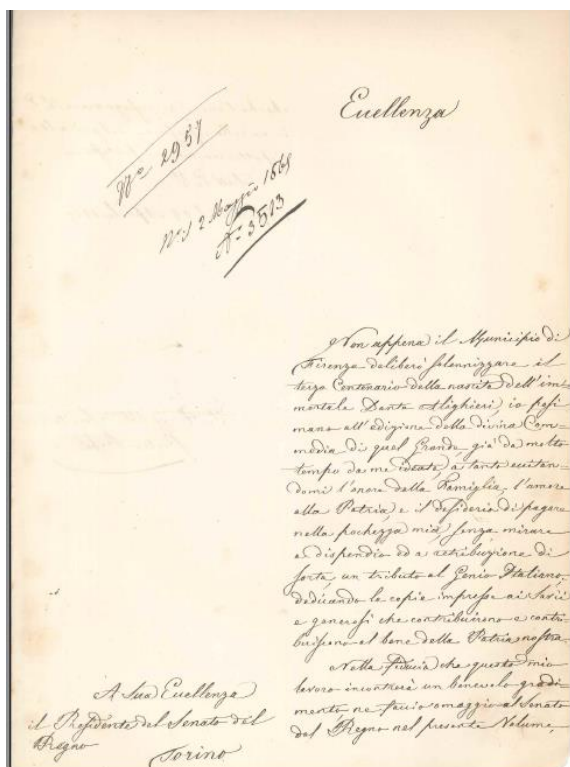 Eccellenza
Nº 2957
2 Maggio 1865
Nº 3513
Non appena il Municipio di
Firenze deliberò solennizzare il
terzo Centenario della nascita dell'im=
mortale Dante Alighieri, io posi
mano all'edizione della divina Com=
media di quel Grande, già da molto
tempo da me ideata, a tanto eccitan=
domi l'onore della Famiglia, l'amore
alla Patria, e il desiderio di pagare
nella pochezza mia, senza mirare
a dispendio ed a retribuzione di
sorta, un tributo al Genio Italiano,
dedicando le copie impresse ai Savii
e generosi che contribuirono e contri=
buiscono al bene della Patria nostra.
Nella fiducia che questo mio
lavoro incontrerà un benevolo gradi=
mento ne faccio omaggio al Senato
del Regno nel presente Volume,
A Sua Eccellenza
il Presidente del Senato del
Regno
Torino